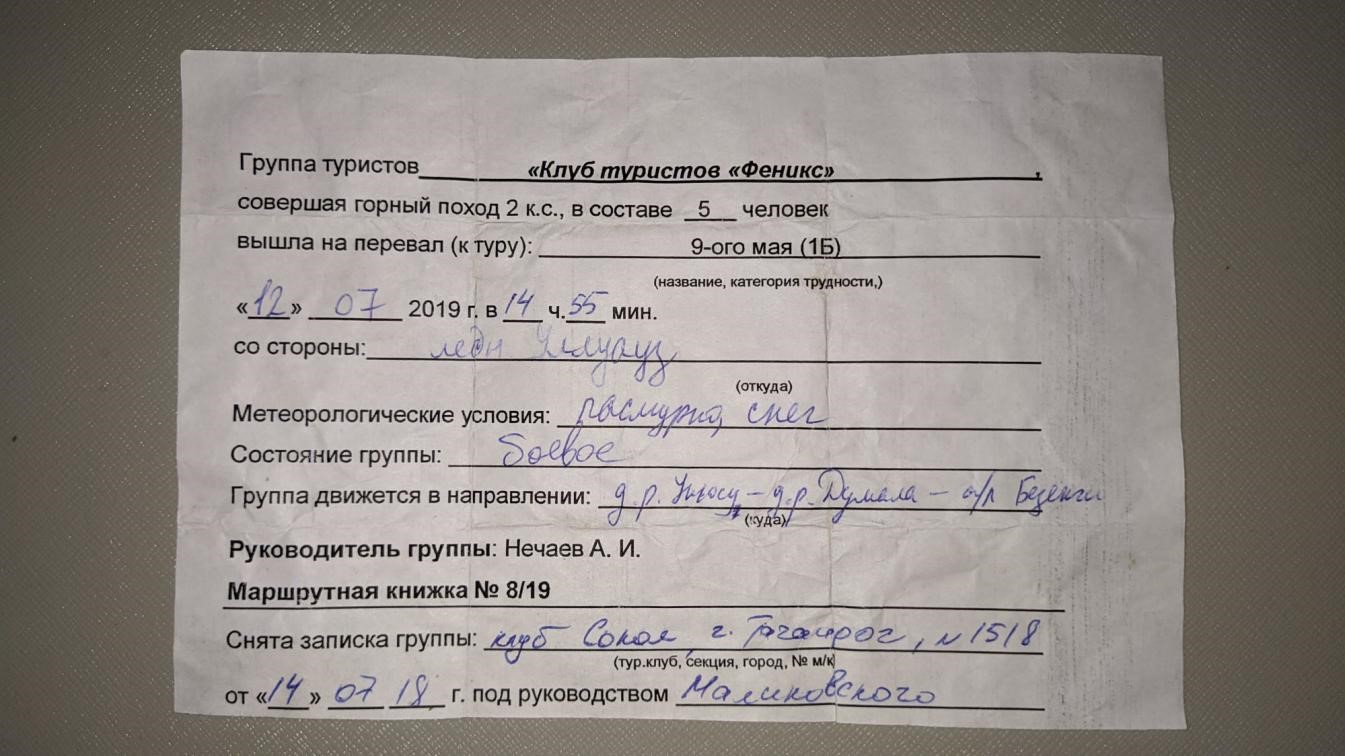 Группа туристов «Клуб туристов «Феникс» ,
совершая горный поход 2 к.с., в составе 5 человек
вышла на перевал (к туру): 9-ого мая (1Б)
(название, категория трудности,)
«12» 07 2019 г. в 14 ч. 55 мин.
со стороны: ледн Уллуауз
(откуда)
Метеорологические условия: пасмурно, снег
Состояние группы: боевое
Группа движется в направлении: д.р. Укюсу – д.р. Думала – а/л Безенги
(куда)
Руководитель группы: Нечаев А. И.
Маршрутная книжка № 8/19
Снята записка группы: клуб Сокол, г. Таганрог, № 15/8
(тур.клуб, секция, город, № м/к)
от «14» 07 18 г. под руководством Малиновского